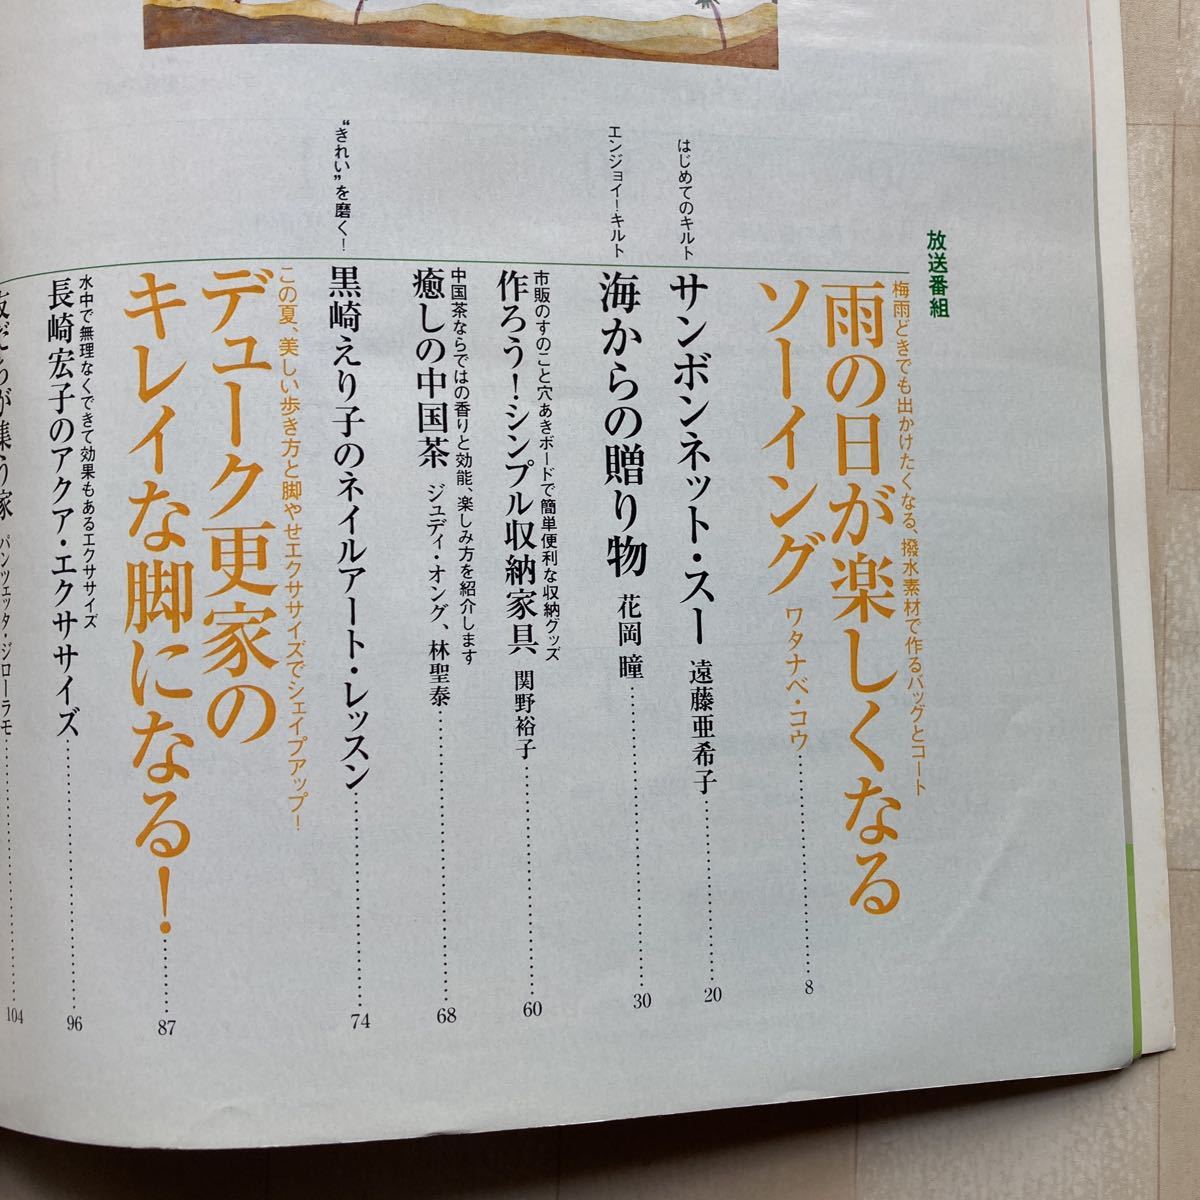 放送番組
梅雨どきでも出かけたくなる、撥水素材で作るバッグとコート
雨の日が楽しくなる
ソーイング ワタナベ・コウ 8
はじめてのキルト
サンボンネット・スー 遠藤亜希子 20
エンジョイ!キルト
海からの贈り物 花岡瞳 30
市販のすのこと穴あきボードで簡単便利な収納グッズ
作ろう!シンプル収納家具 関野裕子 60
中国茶ならではの香りと効能、楽しみ方を紹介します
癒しの中国茶 ジュディ・オング、林聖泰 68
“きれい”を磨く!
黒崎えり子のネイルアート・レッスン 74
この夏、美しい歩き方と脚やせエクササイズでシェイプアップ!
デューク更家の
キレイな脚になる! 87
水中で無理なくできて効果もあるエクササイズ
長崎宏子のアクア・エクササイズ 96
友だちが集う家 パンツェッタ・ジローラモ 104